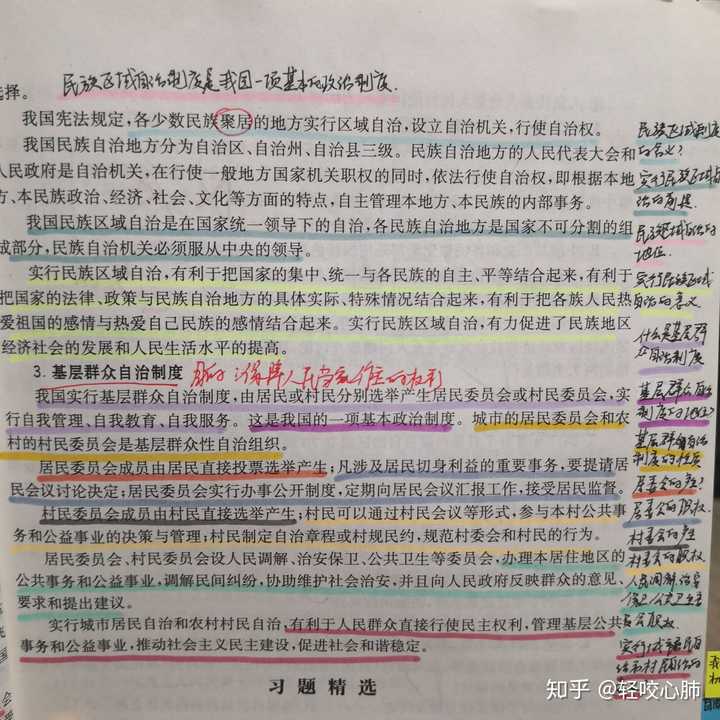 民族区域自治制度是我国一项基本的政治制度.
选择。
我国宪法规定,各少数民族聚居的地方实行区域自治,设立自治机关,行使自治权。
我国民族自治地方分为自治区、自治州、自治县三级。民族自治地方的人民代表大会和
人民政府是自治机关,在行使一般地方国家机关职权的同时,依法行使自治权,即根据本地
方、本民族政治、经济、社会、文化等方面的特点,自主管理本地方、本民族的内部事务。
我国民族区域自治是在国家统一领导下的自治,各民族自治地方是国家不可分割的组
成部分,民族自治机关必须服从中央的领导。
实行民族区域自治,有利于把国家的集中、统一与各民族的自主、平等结合起来,有利于
把国家的法律、政策与民族自治地方的具体实际、特殊情况结合起来,有利于把各族人民热
爱祖国的感情与热爱自己民族的感情结合起来。实行民族区域自治,有力促进了民族地区
经济社会的发展和人民生活水平的提高。
3. 基层群众自治制度 目的:保障人民当家作主的权利
我国实行基层群众自治制度,由居民或村民分别选举产生居民委员会或村民委员会,实
行自我管理、自我教育、自我服务。这是我国的一项基本政治制度。城市的居民委员会和农
村的村民委员会是基层群众性自治组织。
居民委员会成员由居民直接投票选举产生;凡涉及居民切身利益的重要事务,要提请居
民会议讨论决定;居民委员会实行办事公开制度,定期向居民会议汇报工作,接受居民监督。
村民委员会成员由村民直接选举产生;村民可以通过村民会议等形式,参与本村公共事
务和公益事业的决策与管理;村民制定自治章程或村规民约,规范村委会和村民的行为。
居民委员会、村民委员会设人民调解、治安保卫、公共卫生等委员会,办理本居住地区的
公共事务和公益事业,调解民间纠纷,协助维护社会治安,并且向人民政府反映群众的意见、
要求和提出建议。
实行城市居民自治和农村村民自治,有利于人民群众直接行使民主权利,管理基层公共
事务和公益事业,推动社会主义民主建设,促进社会和谐稳定。
习题精选
民族区域自治制度
的含义?
实行民族区域自
治的前提.
民族区域自治的
地位.
实行民族区域
自治的意义
什么是基层群
众自治制度
基层群众自治
制度的地位?
基层群众自治
制度的性质
居委会的产生?
居委会的职权.
村委会的产生
村委会的职权
人民调解、治安
保卫、公共卫生委
员会职权
实行城市居民自
治和农村村民自治的
知乎 @轻咬心肺